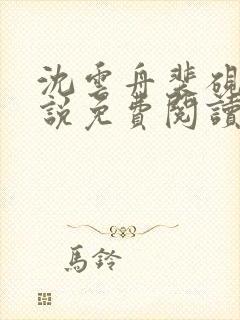 沈雲舟裴硯
說免費閱讀
馬鈴